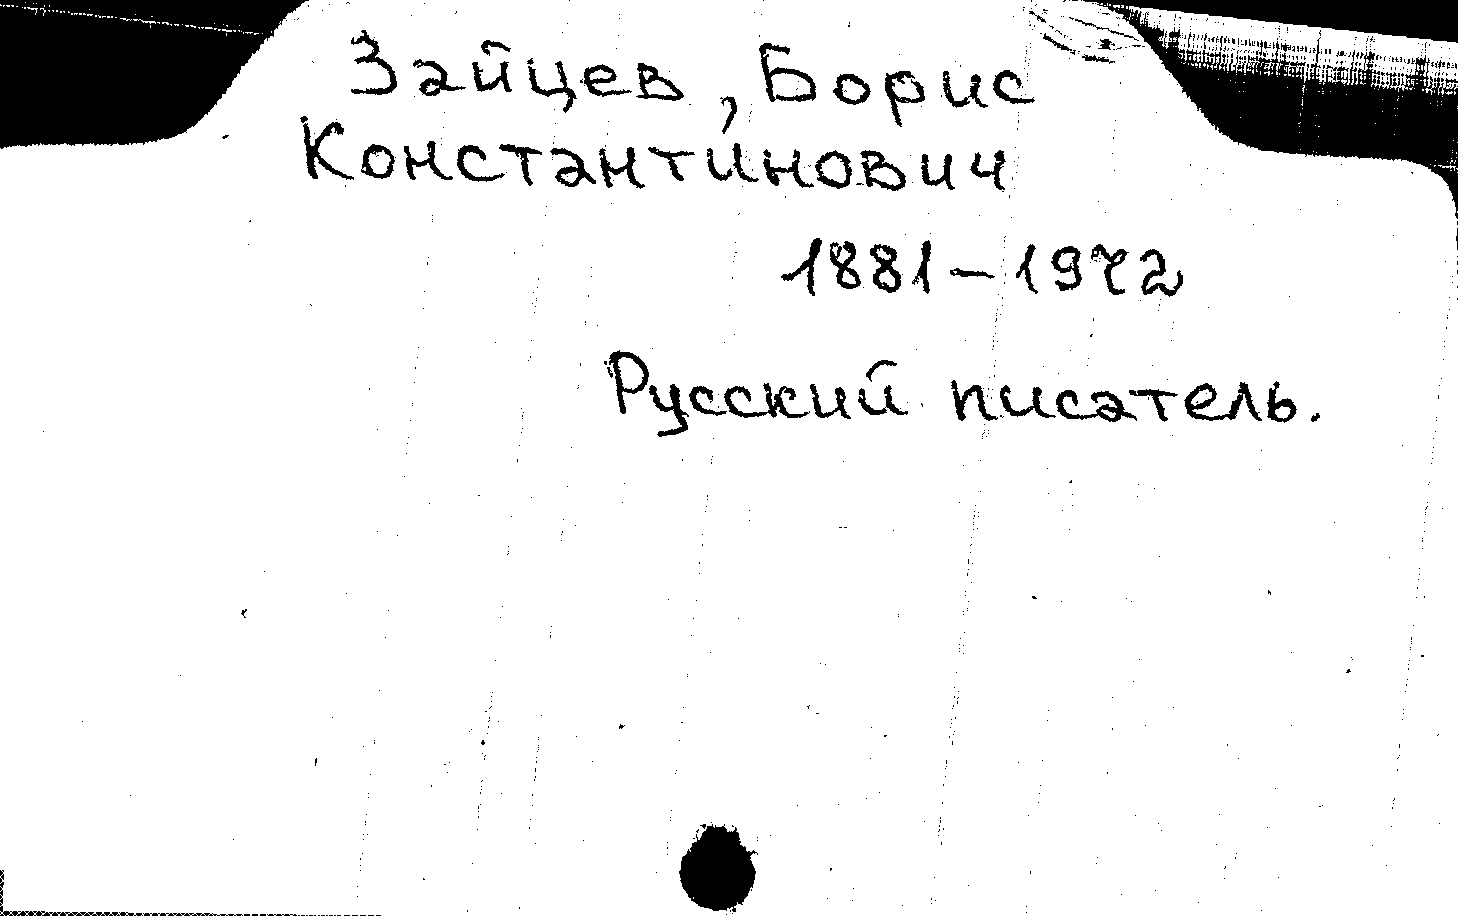 Зайцев, Борис
Константинович
1881-1972
Русский писатель.